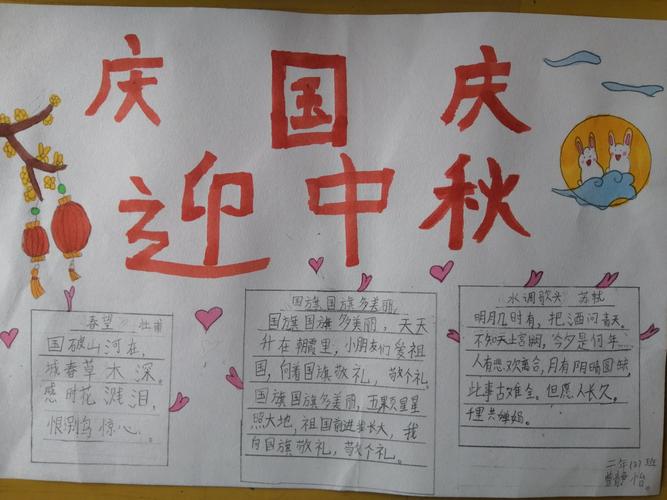 庆国庆
迎中秋
春望 杜甫
国破山河在，
城春草木深。
感时花溅泪，
恨别鸟惊心。
国旗国旗多美丽
国旗国旗多美丽，天天
升在朝霞里，小朋友们爱祖
国，向着国旗敬礼，敬个礼。
国旗国旗多美丽，五颗星星
照大地，祖国前进我长大，我
向国旗敬礼，敬个礼。
水调歌头 苏轼
明月几时有，把酒问青天。
不知天上宫阙，今夕是何年…
人有悲欢离合，月有阴晴圆缺，
此事古难全。但愿人长久，
千里共婵娟。
二年
班
静怡